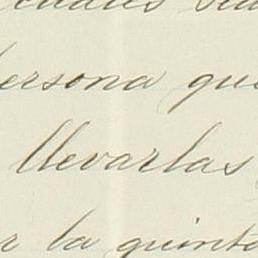 persona que
llevarlas
la quinta